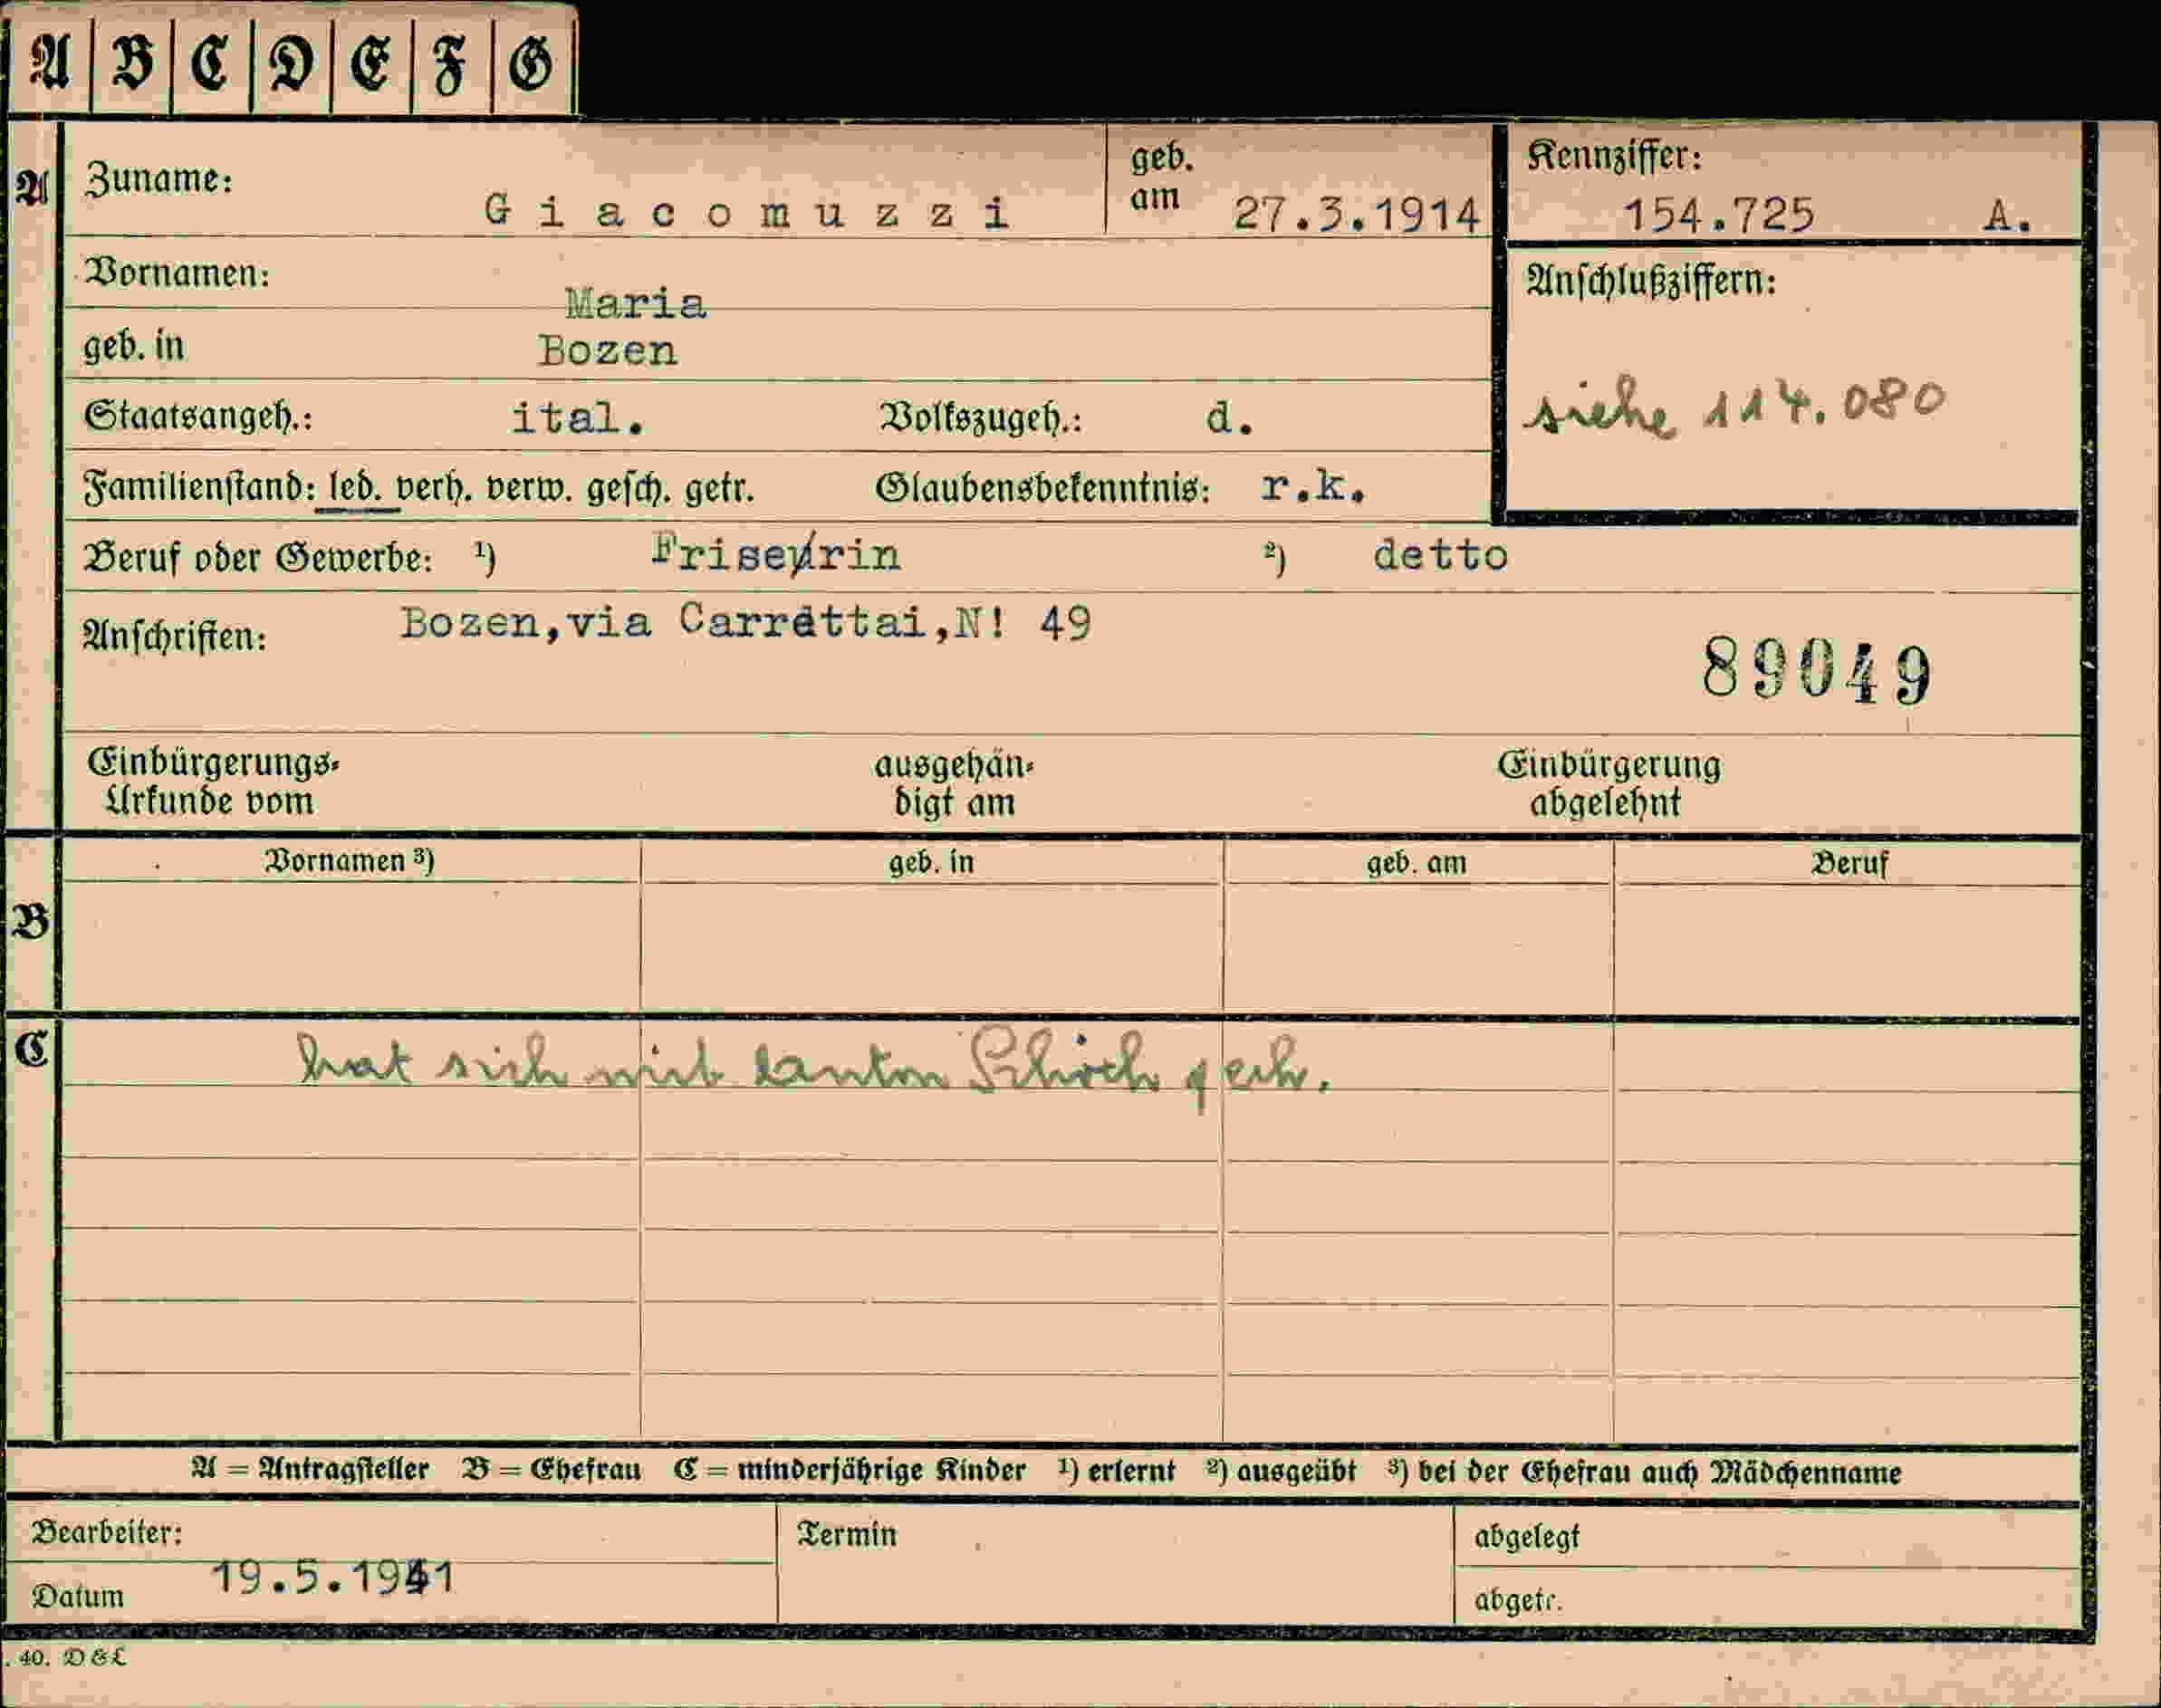 A B C D E F G
A Zuname: Giacomuzzi geb. am 27.3.1914 Kennziffer: 154.725 A.
Vornamen: Maria Anschlußziffern:
geb. in Bozen
siehe 114.080
Staatsangeh.: ital. Volkszugeh.: d.
Familienstand: led. verh. verw. gesch. getr. Glaubensbekenntnis: r.k.
Beruf oder Gewerbe: ¹) Friseyrin ²) detto
Anschriften: Bozen,via Carrettai,N! 49
89049
Einbürgerungs- ausgehän- Einbürgerung
Urkunde vom digt am abgelehnt
Vornamen ³) geb. in geb. am Beruf
B
C hat sich mit Schöch
A = Antragsteller B = Ehefrau C = minderjährige Kinder ¹) erlernt ²) ausgeübt ³) bei der Ehefrau auch Mädchenname
Bearbeiter: Termin abgelegt
Datum 19.5.1941 abgetr.
. 40. D&L